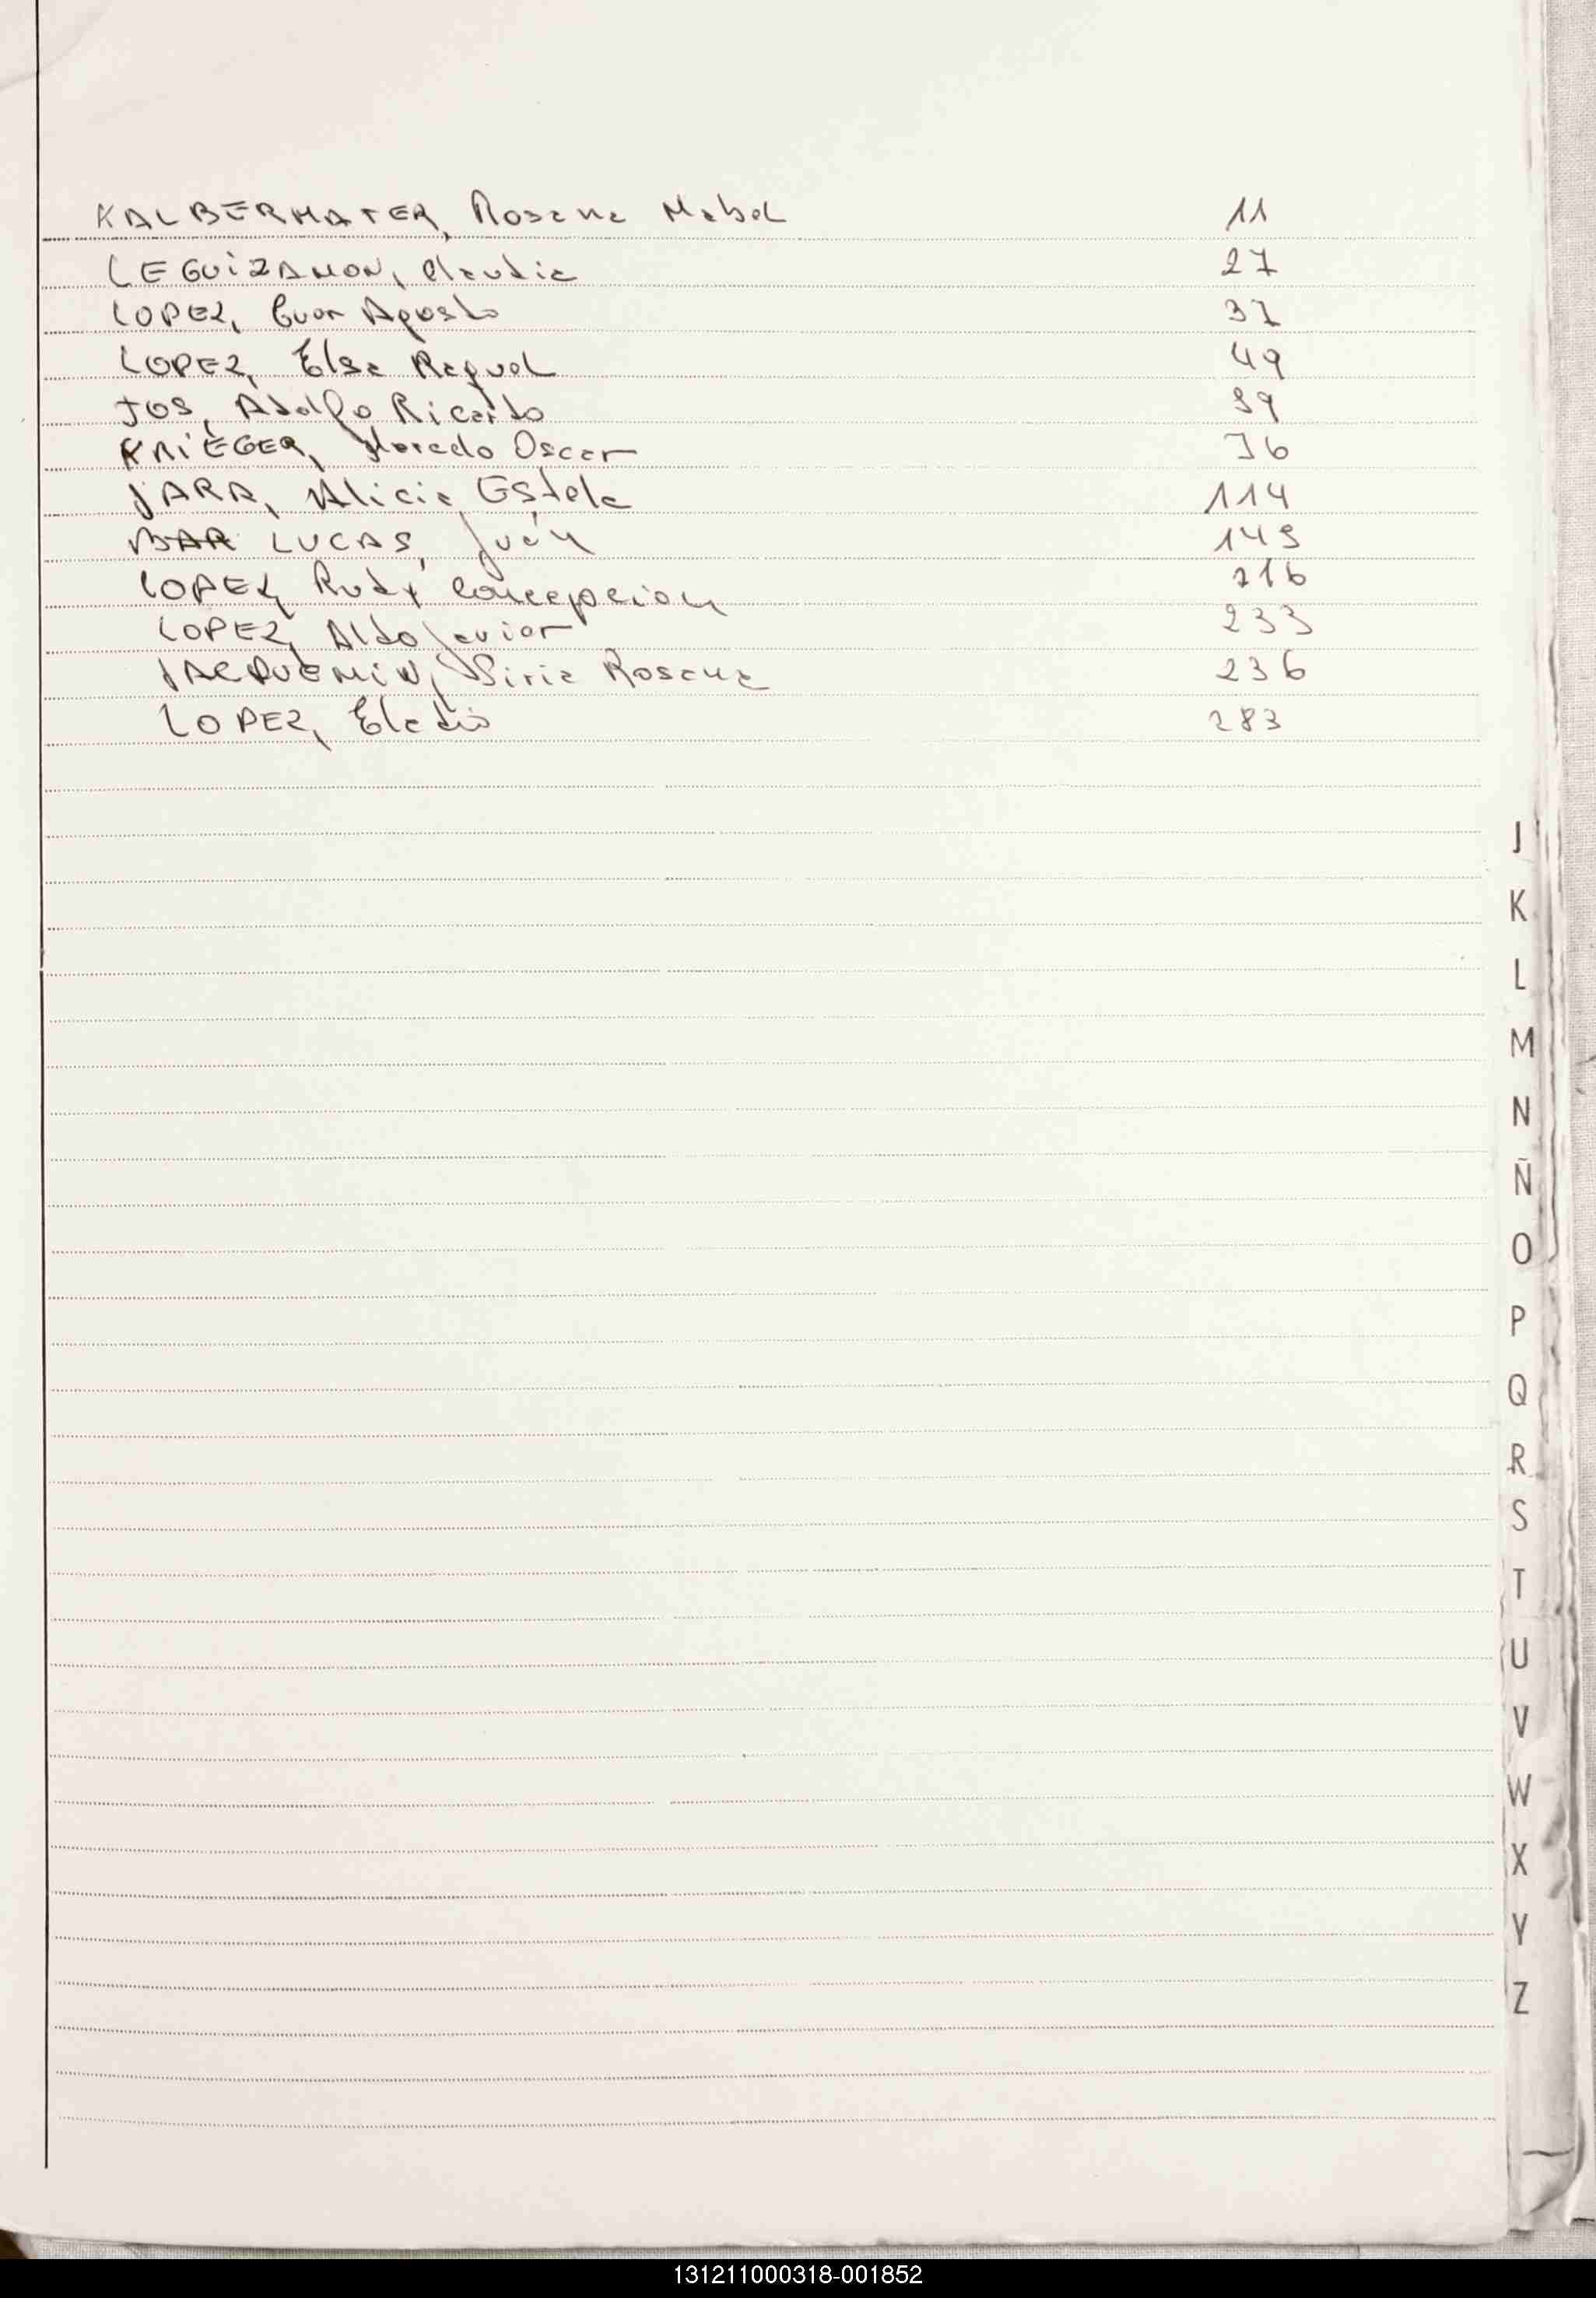 KALBERMATER, Rosana Mabel 11
LEGUIZAMON, Claudia 27
LOPEZ, Agosto 37
LOPEZ, Elsa Raquel 49
JOS, Adolfo Ricardo 59
KRIEGER, Oscar 76
JARA, Alicia Estela 114
BAR LUCAS, Juan 149
LOPEZ, Rudy Concepcion 216
LOPEZ, Aldo Javier 233
JACQUEMIN, Siria Rosana 236
LOPEZ, Eladio 283
J
K
L
M
N
Ñ
O
P
Q
R
S
T
U
V
W
X
Y
Z
131211000318-001852